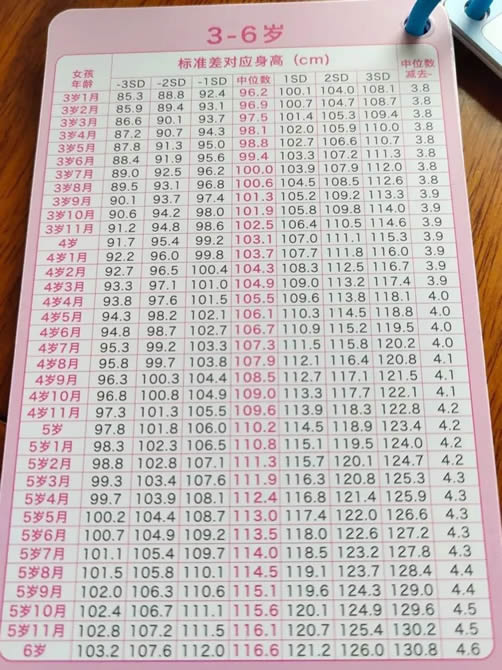 3-6岁
女孩年龄 标准差对应身高（cm） 中位数减去-
-3SD -2SD -1SD 中位数 1SD 2SD 3SD
3岁1月 85.3 88.8 92.4 96.2 100.1 104.0 108.1 3.8
3岁2月 85.9 89.4 93.1 96.9 100.7 104.7 108.7 3.8
3岁3月 86.6 90.1 93.7 97.5 101.4 105.3 109.4 3.8
3岁4月 87.2 90.7 94.3 98.1 102.0 105.9 110.0 3.8
3岁5月 87.8 91.3 95.0 98.8 102.7 106.6 110.7 3.8
3岁6月 88.4 91.9 95.6 99.4 103.3 107.2 111.3 3.8
3岁7月 89.0 92.5 96.2 100.0 103.9 107.9 112.0 3.8
3岁8月 89.5 93.1 96.8 100.6 104.5 108.5 112.6 3.8
3岁9月 90.1 93.7 97.4 101.3 105.2 109.2 113.3 3.9
3岁10月 90.6 94.2 98.0 101.9 105.8 109.8 114.0 3.9
3岁11月 91.2 94.8 98.6 102.5 106.4 110.5 114.6 3.9
4岁 91.7 95.4 99.2 103.1 107.0 111.1 115.3 3.9
4岁1月 92.2 96.0 99.8 103.7 107.7 111.8 116.0 3.9
4岁2月 92.7 96.5 100.4 104.3 108.3 112.5 116.7 3.9
4岁3月 93.3 97.1 101.0 104.9 109.0 113.2 117.4 3.9
4岁4月 93.8 97.6 101.5 105.5 109.6 113.8 118.1 4.0
4岁5月 94.3 98.2 102.1 106.1 110.3 114.5 118.8 4.0
4岁6月 94.8 98.7 102.7 106.7 110.9 115.2 119.5 4.0
4岁7月 95.3 99.2 103.3 107.3 111.5 115.8 120.2 4.0
4岁8月 95.8 99.7 103.8 107.9 112.1 116.4 120.8 4.1
4岁9月 96.3 100.3 104.4 108.5 112.7 117.1 121.5 4.1
4岁10月 96.8 100.8 104.9 109.0 113.3 117.7 122.1 4.1
4岁11月 97.3 101.3 105.5 109.6 113.9 118.3 122.8 4.2
5岁 97.8 101.8 106.0 110.2 114.5 118.9 123.4 4.2
5岁1月 98.3 102.3 106.5 110.8 115.1 119.5 124.0 4.2
5岁2月 98.8 102.8 107.1 111.3 115.7 120.1 124.7 4.2
5岁3月 99.3 103.4 107.6 111.9 116.3 120.8 125.3 4.3
5岁4月 99.7 103.9 108.1 112.4 116.8 121.4 125.9 4.3
5岁5月 100.2 104.4 108.7 113.0 117.4 122.0 126.6 4.3
5岁6月 100.7 104.9 109.2 113.5 118.0 122.6 127.2 4.3
5岁7月 101.1 105.4 109.7 114.0 118.5 123.2 127.8 4.3
5岁8月 101.5 105.8 110.1 114.5 119.1 123.7 128.4 4.4
5岁9月 102.0 106.3 110.6 115.1 119.6 124.3 129.0 4.4
5岁10月 102.4 106.7 111.1 115.6 120.1 124.9 129.6 4.5
5岁11月 102.8 107.2 111.5 116.1 120.7 125.4 130.2 4.5
6岁 103.2 107.6 112.0 116.6 121.2 126.0 130.8 4.6